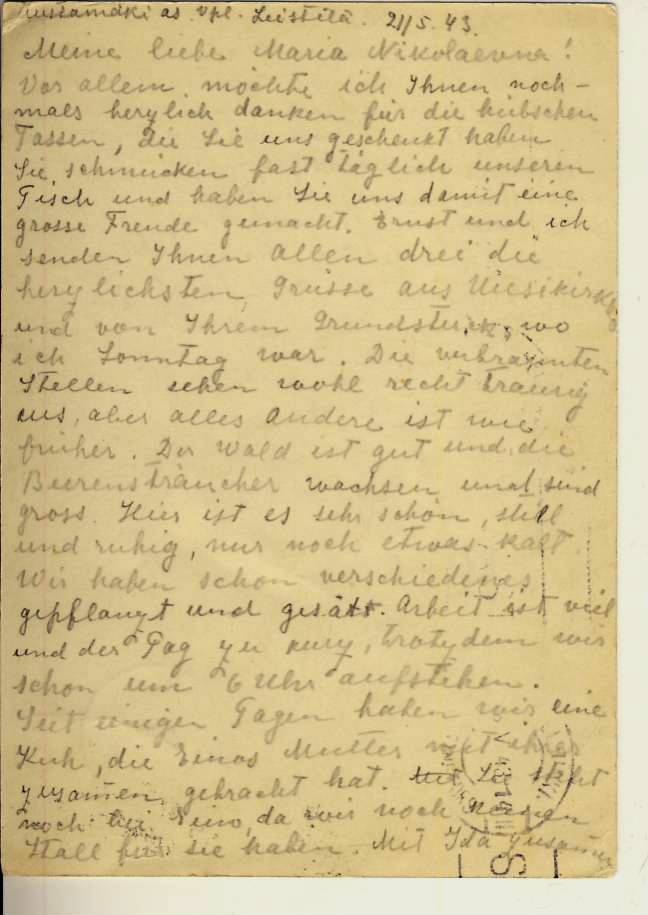 as. Vpl. Leistilä. 21/5. 43.
Meine liebe Maria Nikolaevna!
Vor allem möchte ich Ihnen noch-
mals herzlich danken für die hübschen
Tassen, die Sie uns geschenkt haben
Sie schmücken fast täglich unseren
Tisch und haben Sie uns damit eine
grosse Freude gemacht. Ernst und ich
senden Ihnen allen drei die
herzlichsten Grüsse aus Uiesikirkko
und von Ihrem Grundstück, wo
ich Sonntag war. Die verbrannten
Stellen sehen wohl recht traurig
aus, aber alles andere ist wie
früher. Der Wald ist gut und die
Beerensträucher wachsen und sind
gross. Hier ist es sehr schön, still
und ruhig, nur noch etwas kalt.
Wir haben schon verschiedenes
gepflanzt und gesätt. Arbeit ist viel
und der Tag zu kurz, trotzdem wir
schon um 6 Uhr aufstehen.
Seit einigen Tagen haben wir eine
Kuh, die Einos Mutter mit ihrer
zusamen gebracht hat. Sie steht
noch bei Eino, da wir noch keinen
Stall für sie haben. Mit Ida zusamen